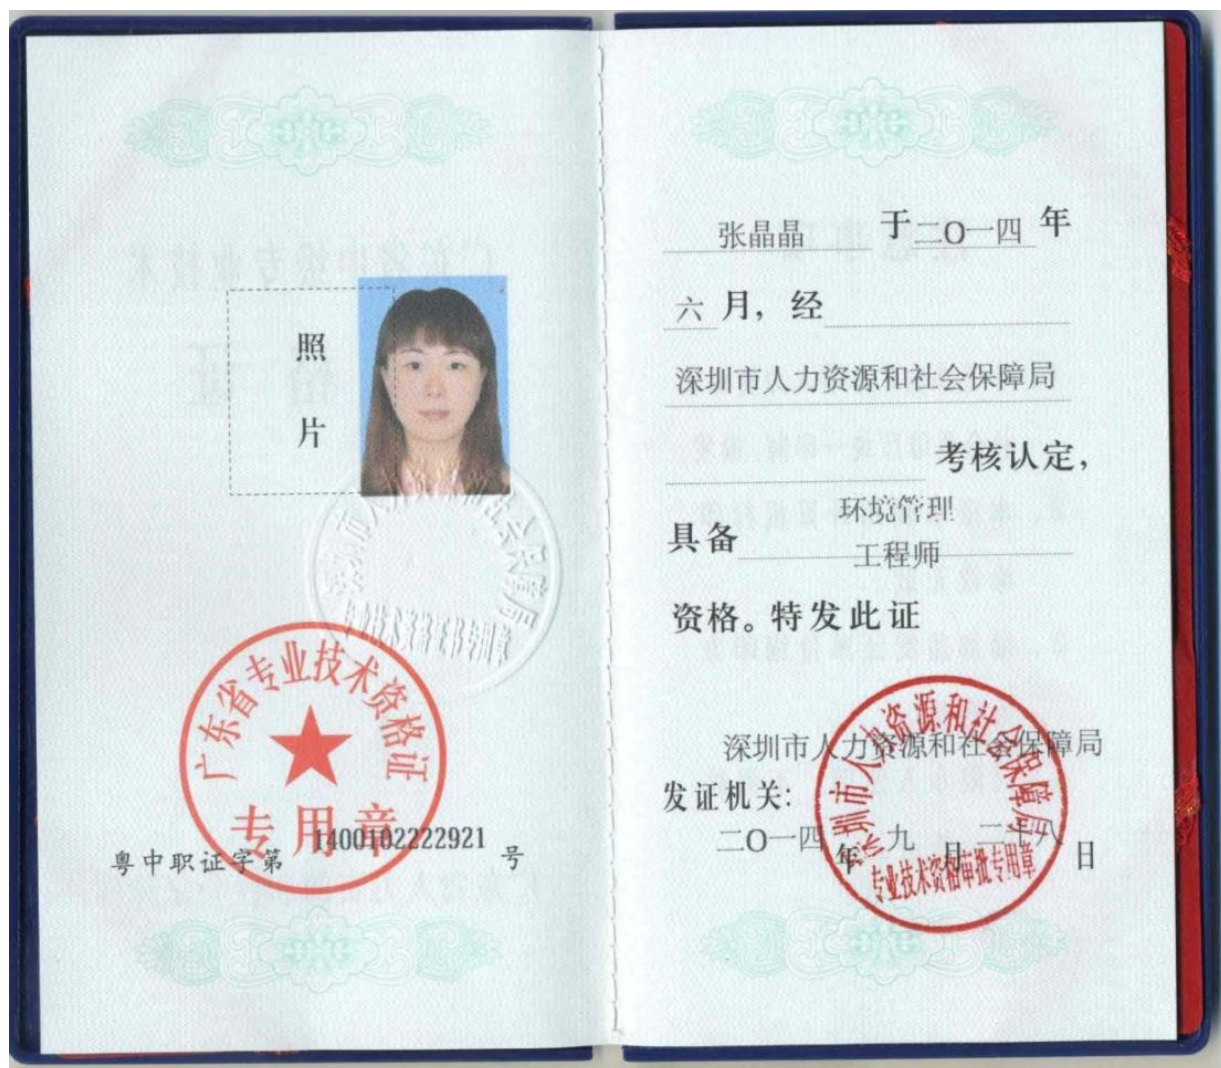 照
片
深圳市人力资源和社会保障局
广东省专业技术资格证
专用章
粤中职证字第 1400102222921 号
张晶晶 于 二〇一四 年
六 月，经
深圳市人力资源和社会保障局
考核认定，
环境管理
具备
工程师
资格。特发此证
深圳市人力资源和社会保障局
发证机关：
二〇一四 年 九 月 二十八 日
深圳市人力资源和社会保障局
专业技术资格审批专用章